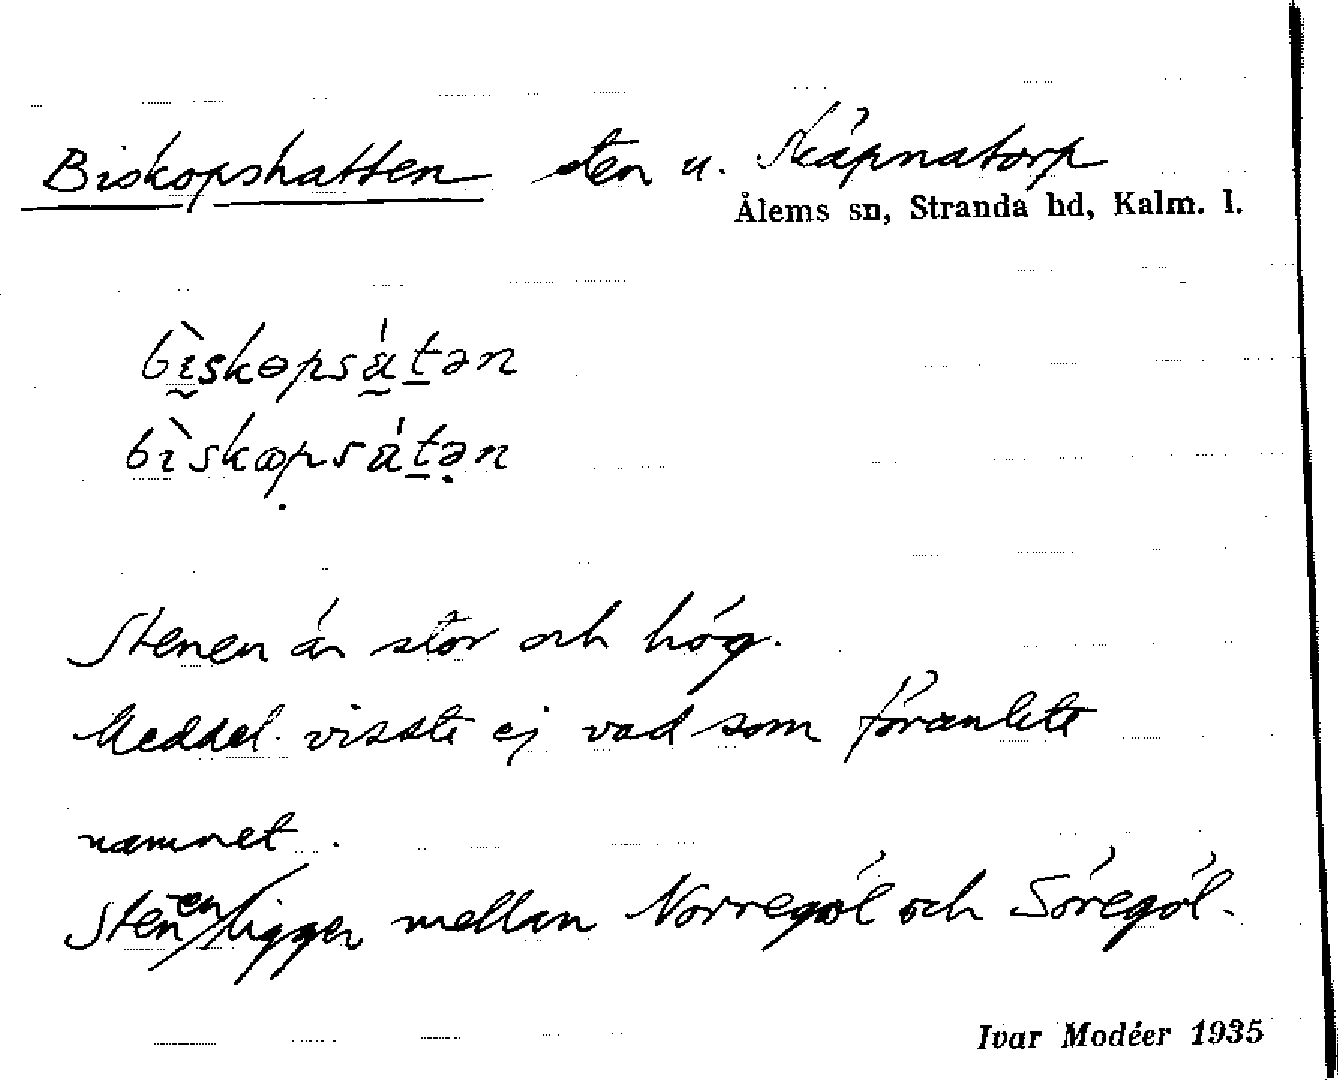 Biskopshatten sten u. Skäpnatorp
Ålems sn, Stranda hd, Kalm. l.
bìskɵpsátən
bìskopsátən
Stenen är stor och hög.
Meddel. visste ej vad som föranlett
namnet.
Stenen ligger mellan Norregöl och Söregöl.
Ivar Modéer 1935